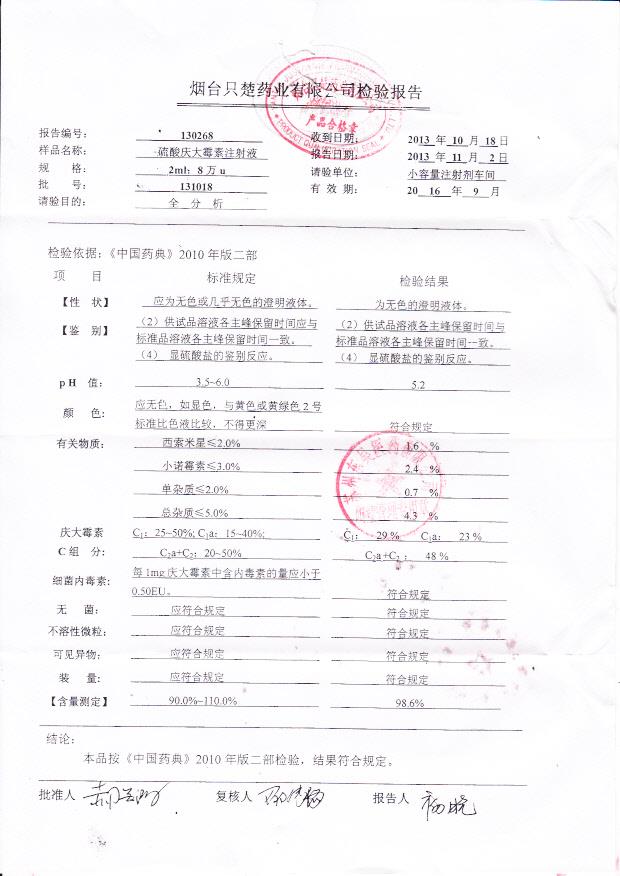 烟台只楚药业有限公司检验报告
报告编号: 130268 收到日期: 2013 年 10 月 18 日
样品名称: 硫酸庆大霉素注射液 报告日期: 2013 年 11 月 2 日
规 格: 2ml: 8 万 u 请验单位: 小容量注射剂车间
批 号: 131018 有 效 期: 20 16 年 9 月
请验目的: 全 分 析
产品合格章
检验依据:《中国药典》2010 年版二部
项 目 标准规定 检验结果
【性 状】 应为无色或几乎无色的澄明液体。 为无色的澄明液体。
【鉴 别】 (2)供试品溶液各主峰保留时间应与 (2)供试品溶液各主峰保留时间与
标准品溶液各主峰保留时间一致。 标准品溶液各主峰保留时间一致。
(4) 显硫酸盐的鉴别反应。 (4) 显硫酸盐的鉴别反应。
pH 值: 3.5~6.0 5.2
颜 色: 应无色,如显色,与黄色或黄绿色 2 号
标准比色液比较,不得更深 符合规定
有关物质: 西索米星≤2.0% 1.6 %
小诺霉素≤3.0% 2.4 %
单杂质≤2.0% 0.7 %
总杂质≤5.0% 4.3 %
庆大霉素 C1: 25~50%; C1a: 15~40%; C1: 29 % C1a: 23 %
C 组 分: C2a+C2: 20~50% C2a+C2: 48 %
细菌内毒素: 每 1mg 庆大霉素中含内毒素的量应小于
0.50EU。 符合规定
无 菌: 应符合规定 符合规定
不溶性微粒: 应符合规定 符合规定
可见异物: 应符合规定 符合规定
装 量: 应符合规定 符合规定
【含量测定】 90.0%~110.0% 98.6%
结论:
本品按《中国药典》2010 年版二部检验,结果符合规定。
批准人 复核人 报告人